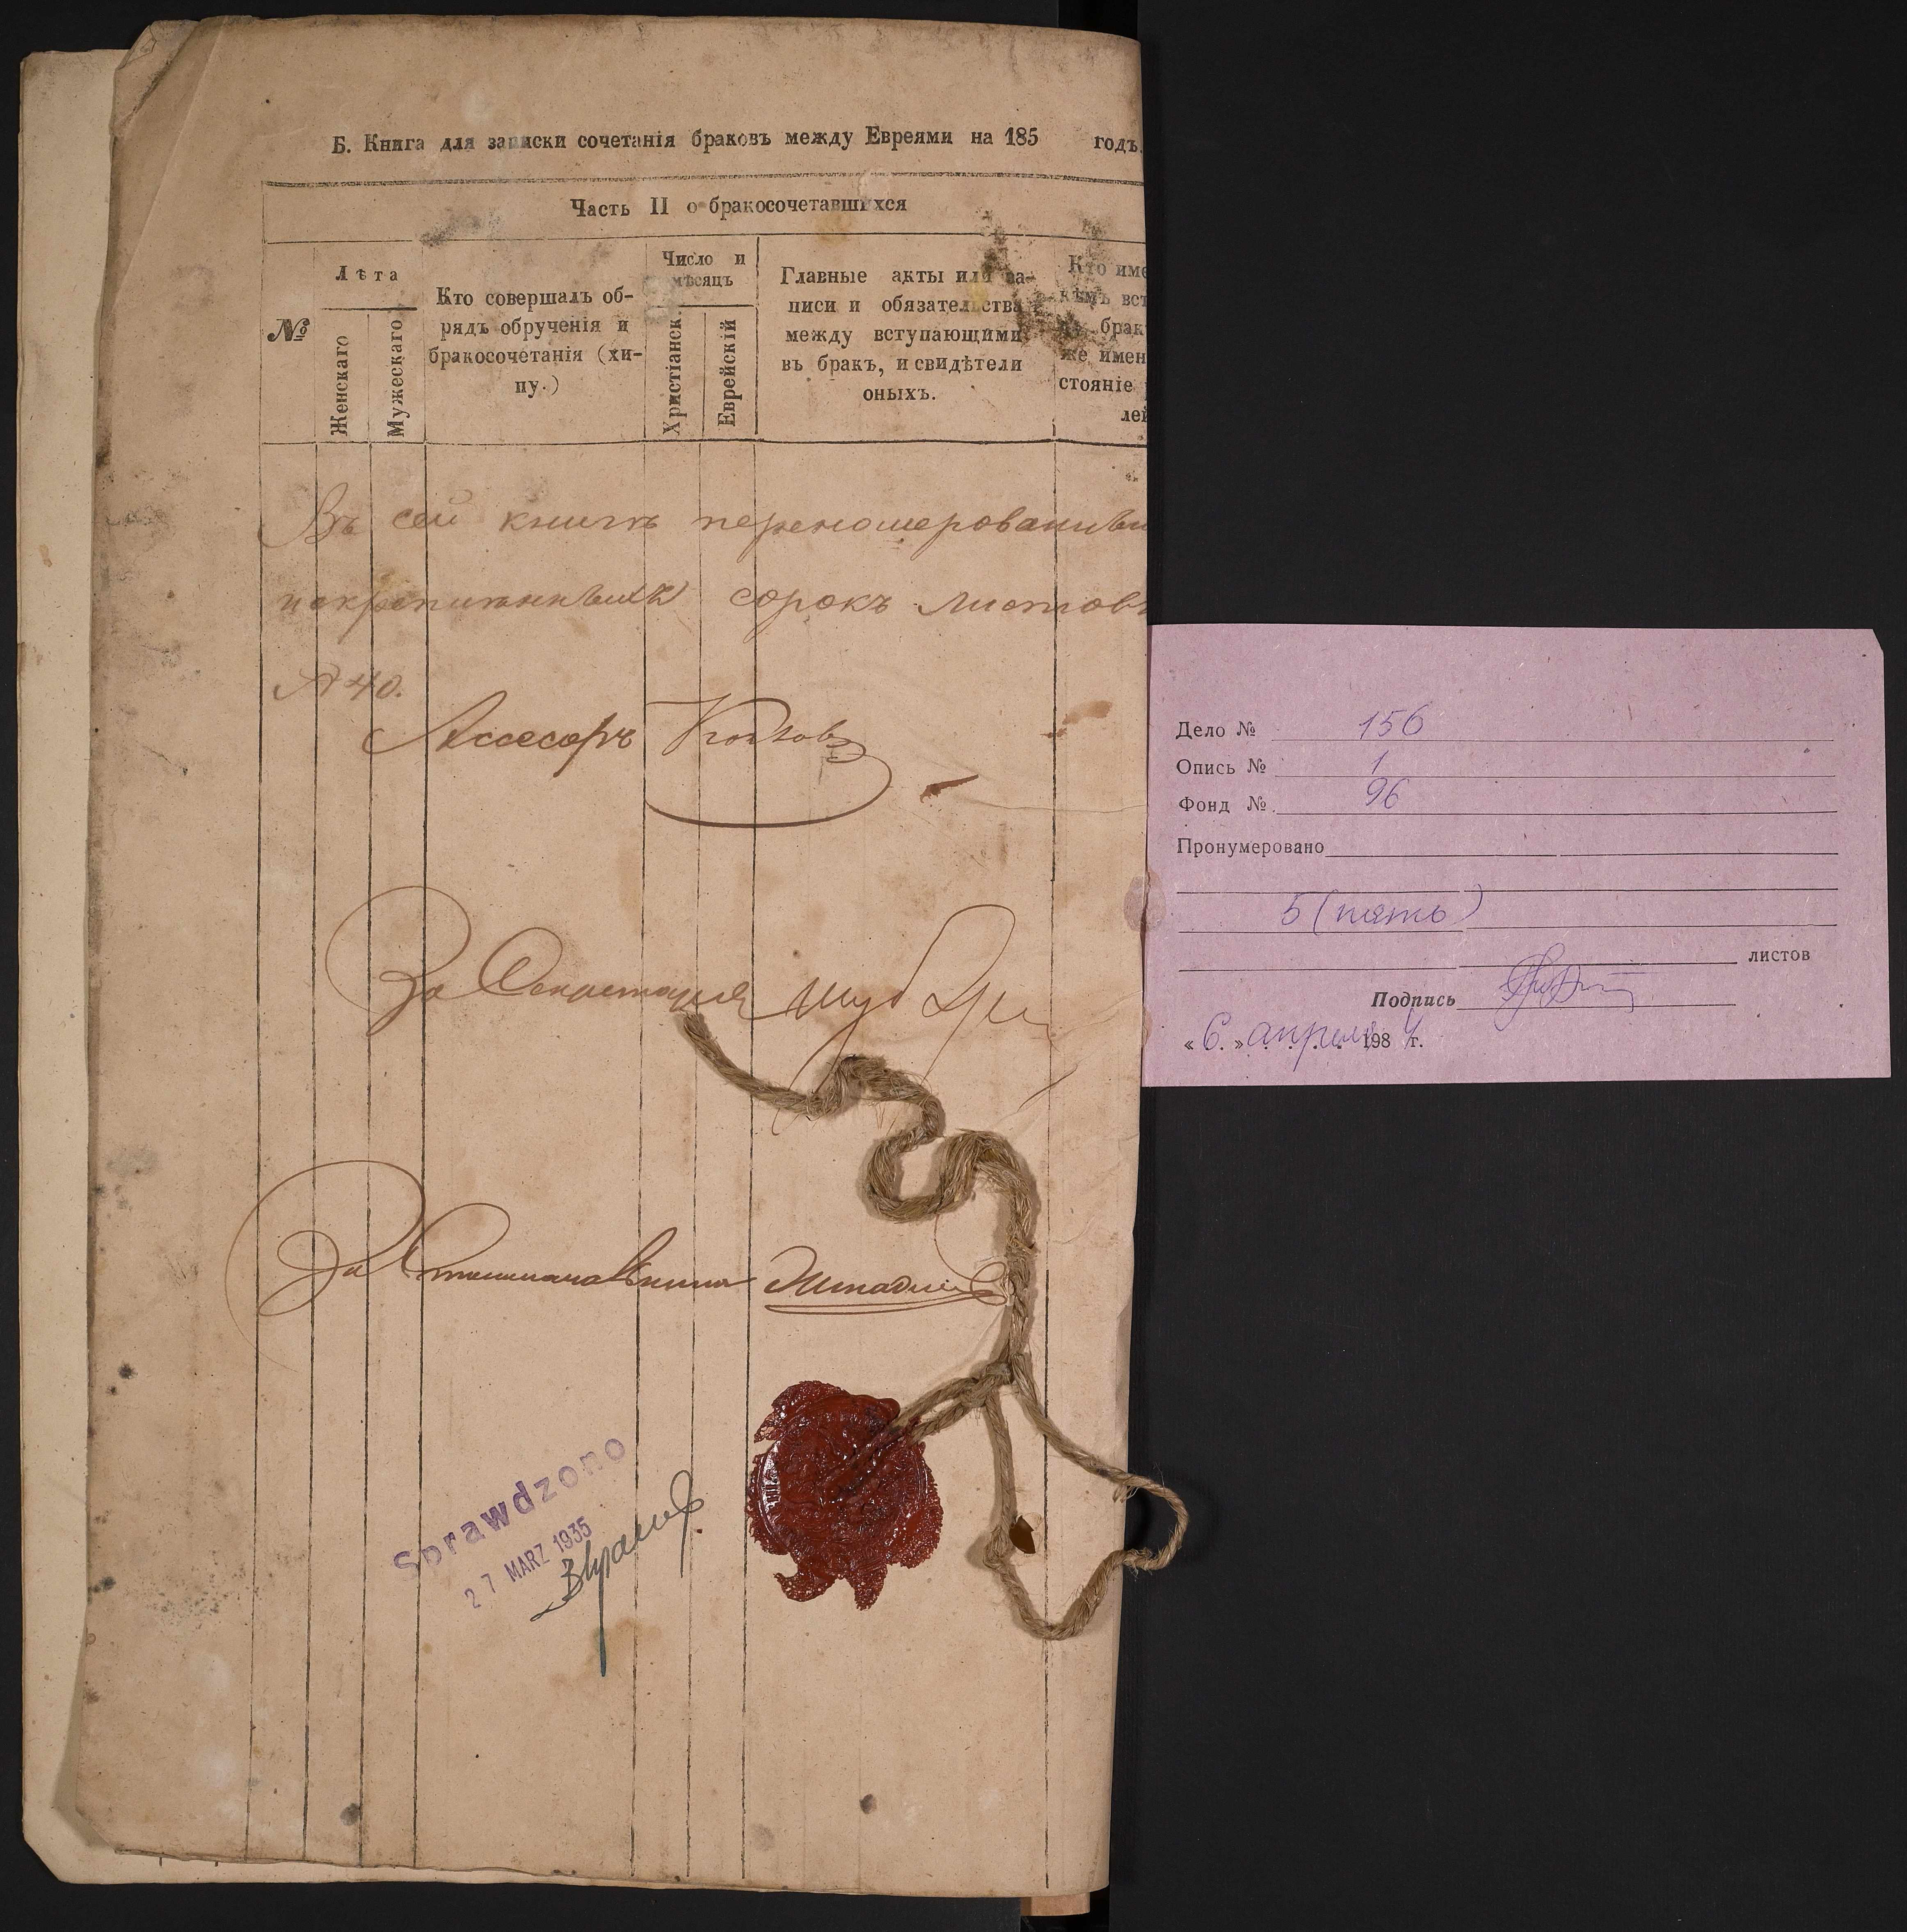 Б. Книга для записки сочетанія браковъ между Евреями на 185 годъ.
Часть II о бракосочетавшихся
№
Лѣта
Женскаго
Мужескаго
Кто совершалъ об-
рядъ обрученія и
бракосочетанія (хи-
пу.)
Число и
мѣсяцъ
Христіанск.
Еврейскій
Главные акты или за-
писи и обязательства
между вступающими
въ брак, и свидѣтели
оныхъ.
Кто име
кѣмъ вст
брак
же имен
стояніе
лей
Въ сей книгѣ переномерованны
сорокъ листовъ
40.
Ассесоръ
За Секретаря
За
Sprawdzono
27 MARZ 1935
Дело № 156
Опись № 1
Фонд № 96
Пронумеровано
5 (пять)
листов
Подпись
« 6. » апреля 1984 г.